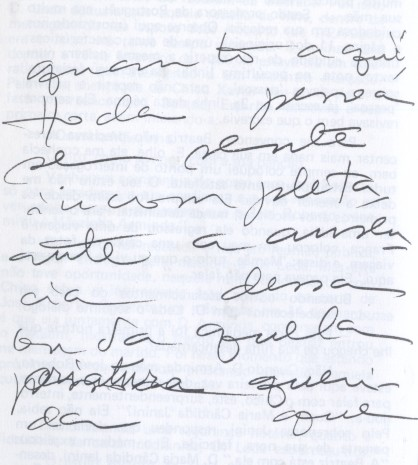 quanto aqui,
toda pessoa
se sente
incompleta,
ante a ausên
cia dessa
ou daquela
criatura queri-
da que